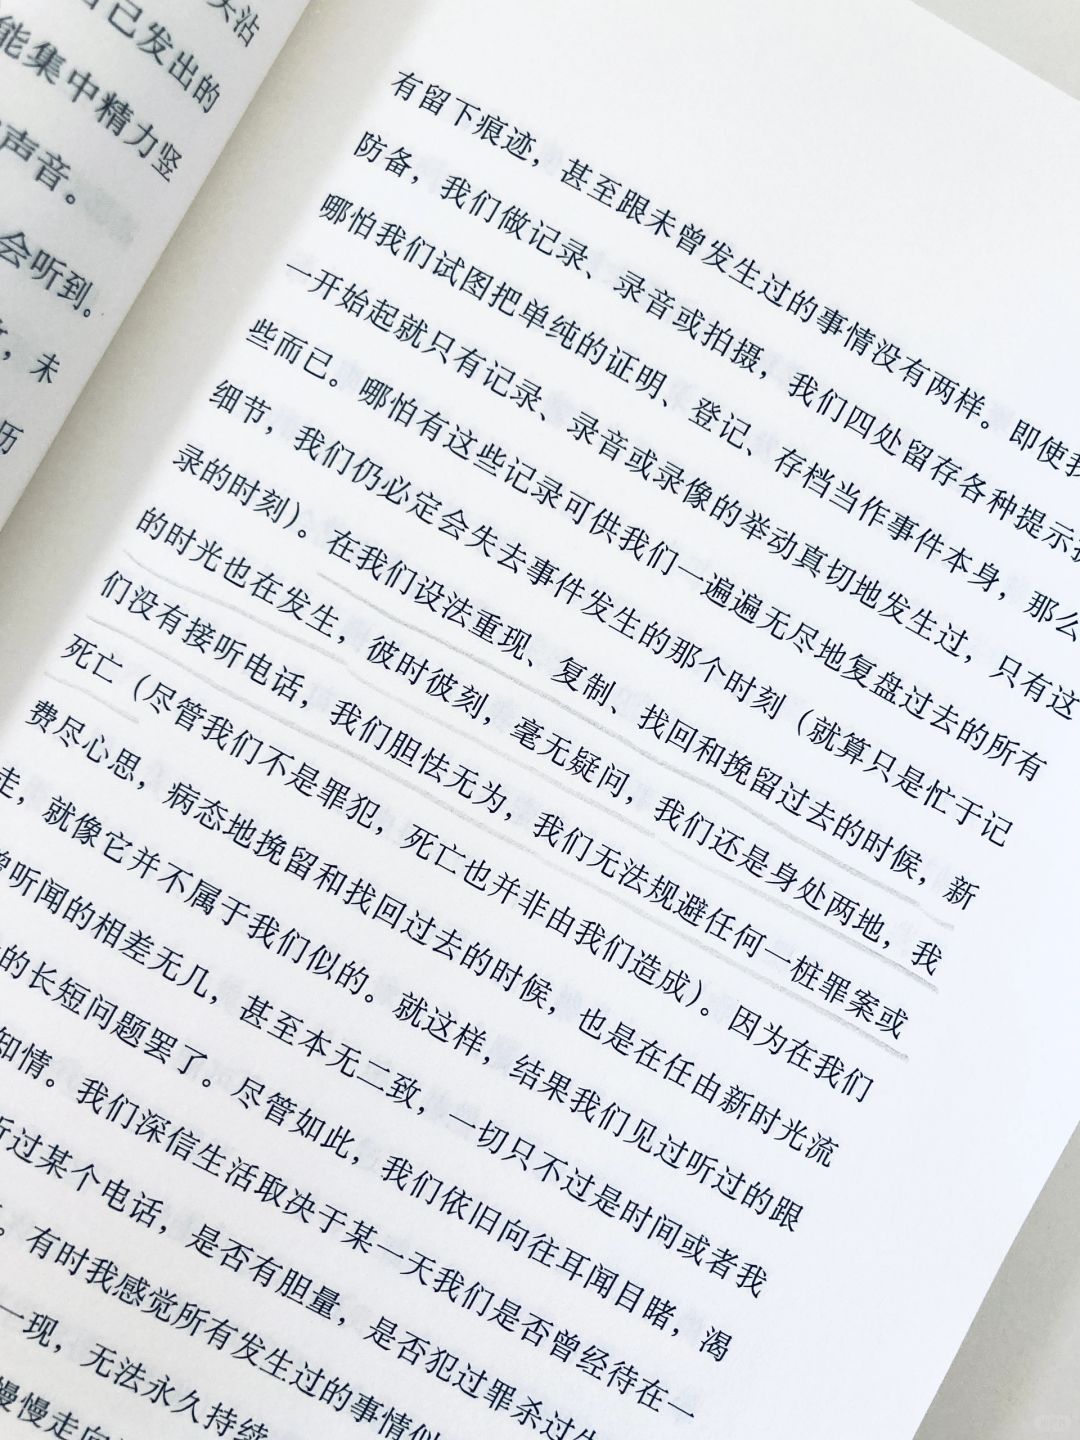 头沾
自己发出的
能集中精力竖
声音。
会听到。
，未
历
有留下痕迹，甚至跟未曾发生过的事情没有两样。即使我
防备，我们做记录、录音或拍摄，我们四处留存各种提示
哪怕我们试图把单纯的证明、登记、存档当作事件本身，那么
一开始起就只有记录、录音或录像的举动真切地发生过，只有这
些而已。哪怕有这些记录可供我们一遍遍无尽地复盘过去的所有
细节，我们仍必定会失去事件发生的那个时刻（就算只是忙于记
录的时刻）。在我们设法重现、复制、找回和挽留过去的时候，新
的时光也在发生，彼时彼刻，毫无疑问，我们还是身处两地，我
们没有接听电话，我们胆怯无为，我们无法规避任何一桩罪案或
死亡（尽管我们不是罪犯，死亡也并非由我们造成）。因为在我们
费尽心思，病态地挽留和找回过去的时候，也是在任由新时光流
走，就像它并不属于我们似的。就这样，结果我们见过听过的跟
曾听闻的相差无几，甚至本无二致，一切只不过是时间或者我
的长短问题罢了。尽管如此，我们依旧向往耳闻目睹，渴
知情。我们深信生活取决于某一天我们是否曾经待在一
听过某个电话，是否有胆量，是否犯过罪杀过
。有时我感觉所有发生过的事情似
一现，无法永久持续
慢慢走向